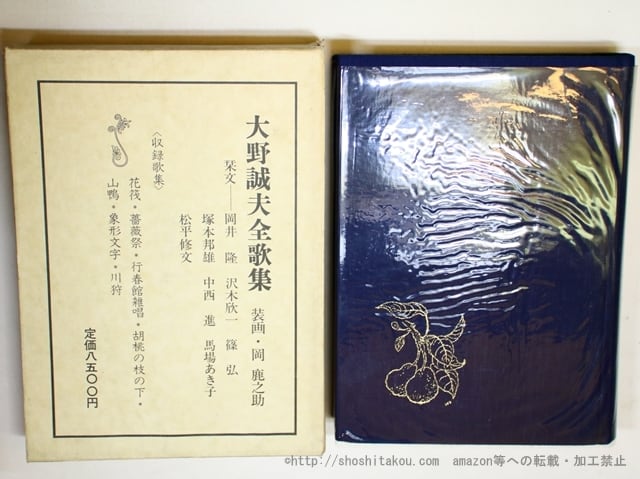 大野誠夫全歌集 装画・岡 鹿之助
栞文——岡井 隆 沢木欣一 篠 弘
塚本邦雄 中西 進 馬場あき子
松平修文
〈収録歌集〉
花筏・薔薇祭・行春館雑唱・胡桃の枝の下・
山鴫・象形文字・川狩
定価八五〇〇円
©http://shoshitakou.com amazon等への転載・加工禁止